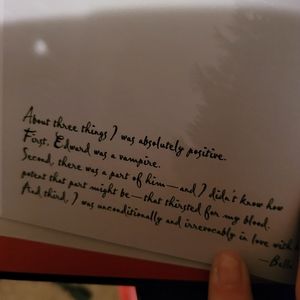 About three things I was absolutely positive.
First, Edward was a vampire.
Second, there was a part of him—and I didn't know how
potent that part might be—that thirsted for my blood.
And third, I was unconditionally and irrevocably in love with
—Bella